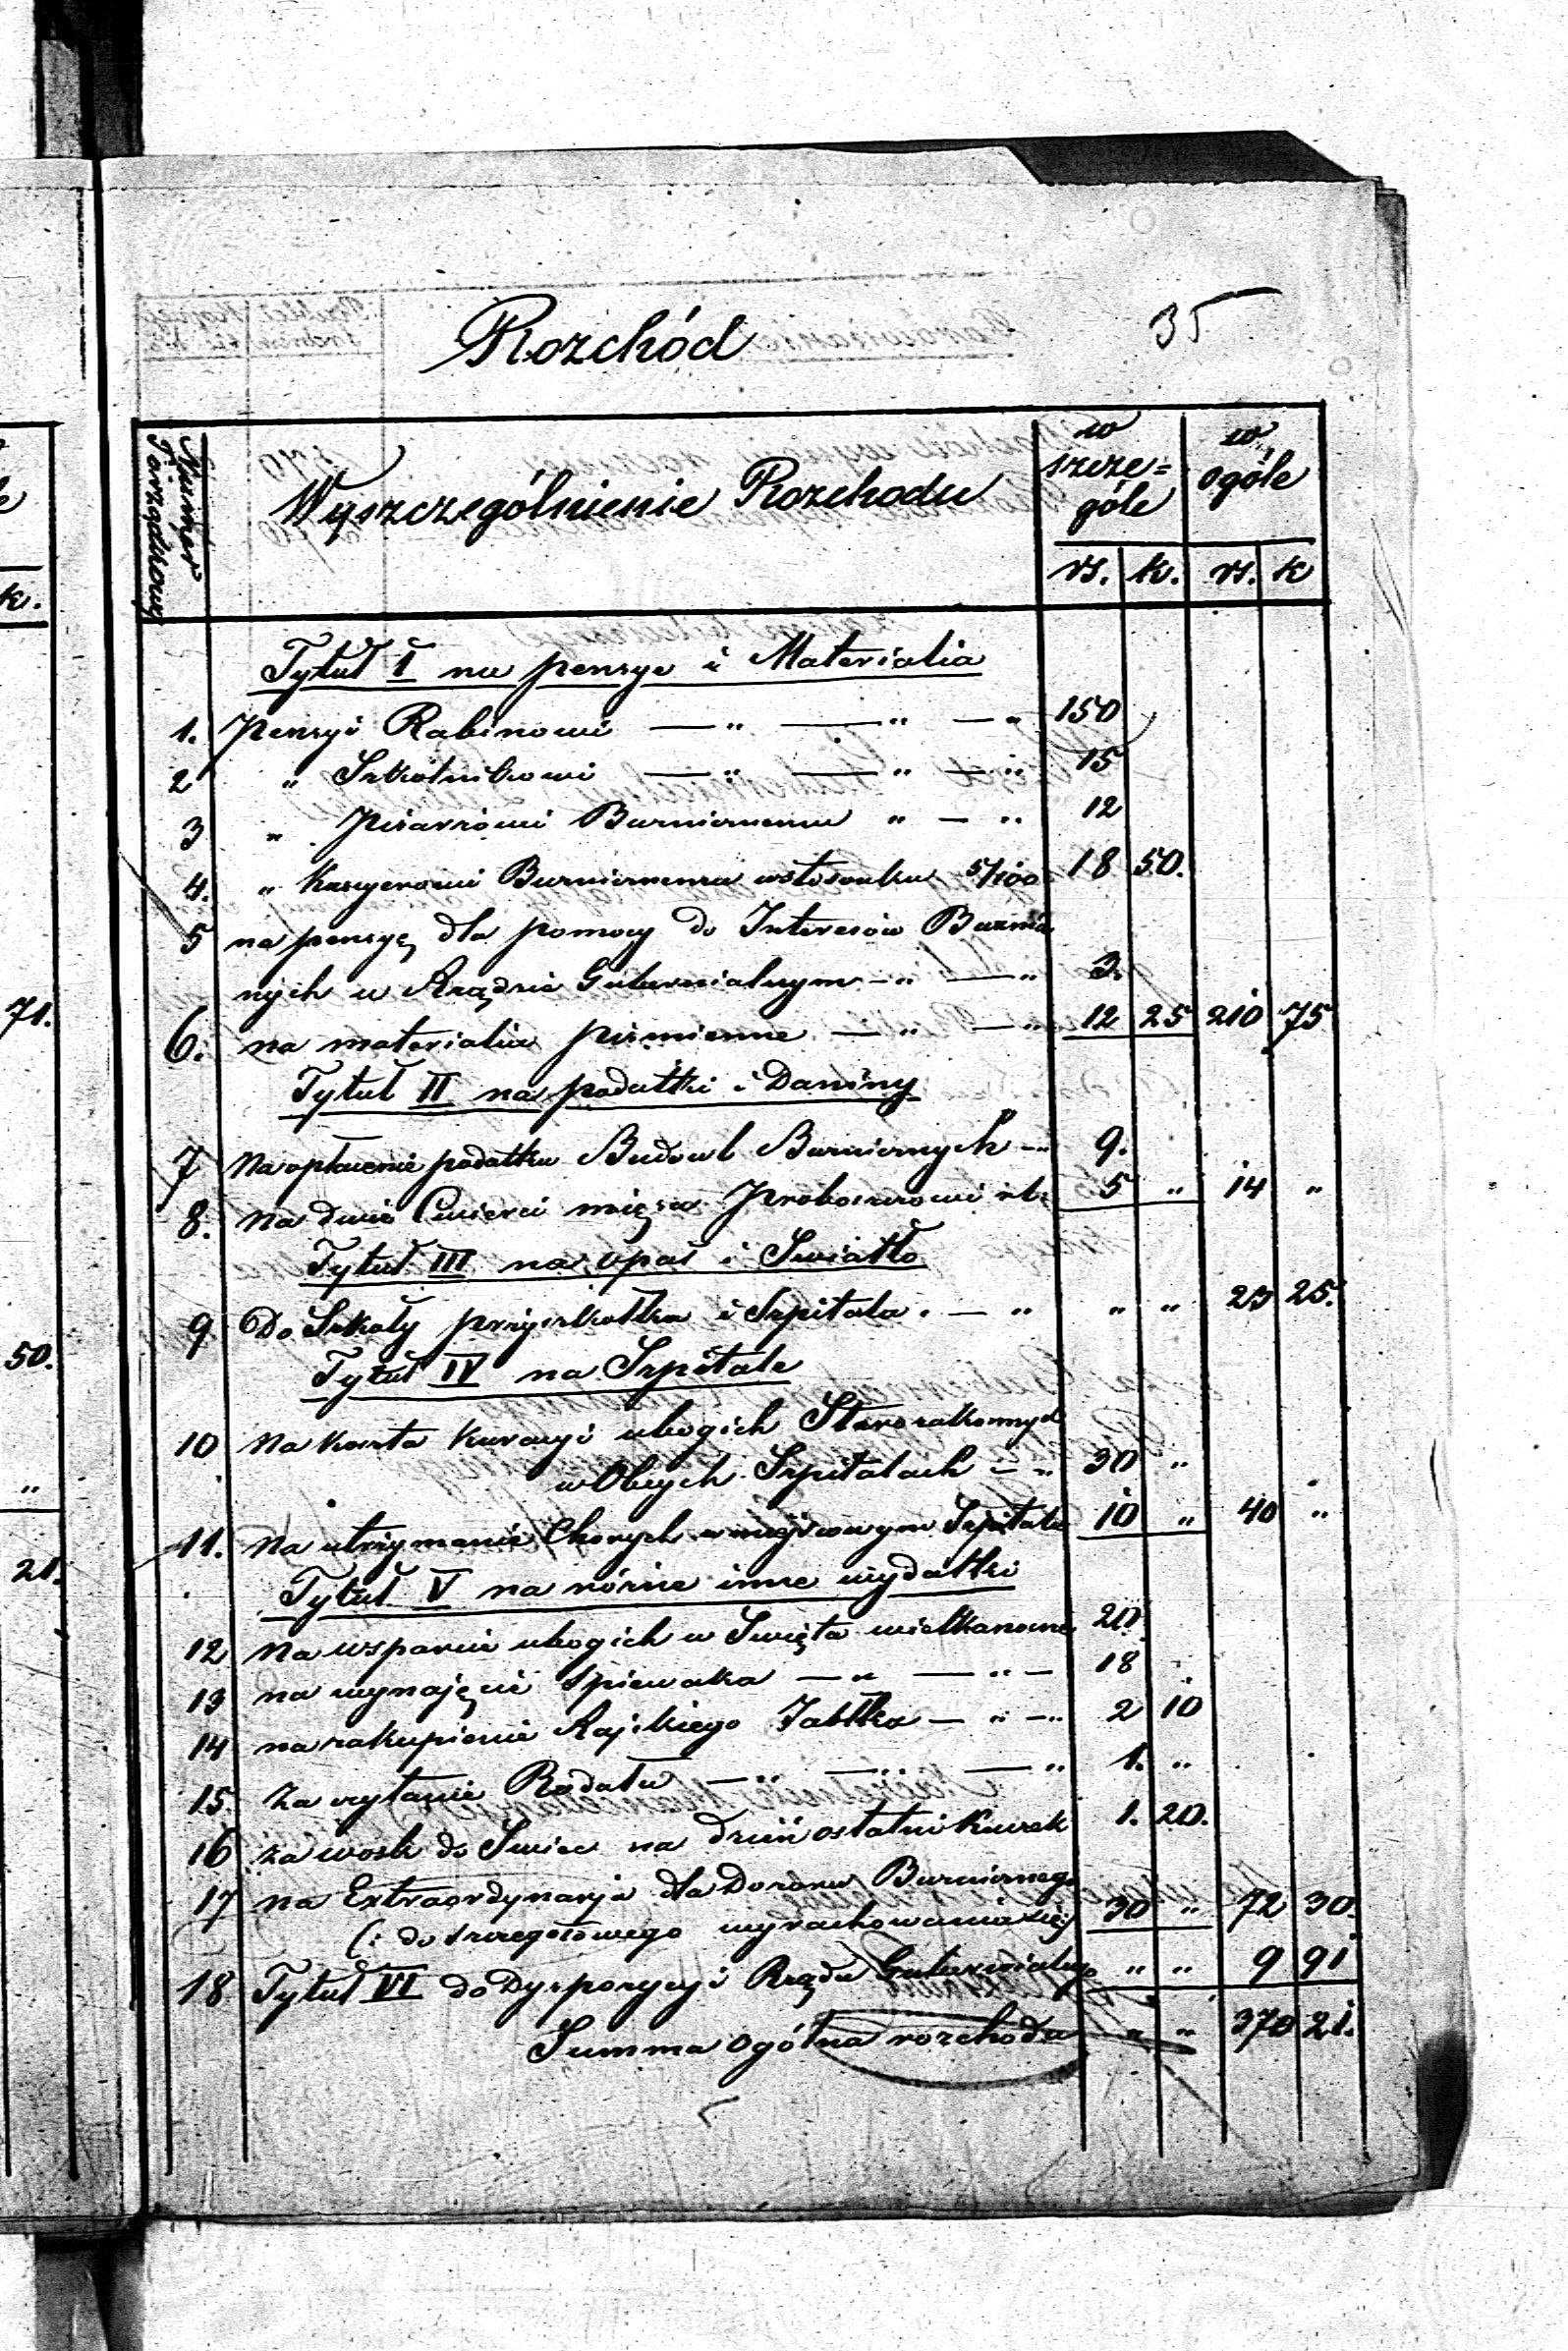 35
Rozchód
Numer Porządkowy
Wyszczególnienie Rozchodu
w szcze=
góle
w
ogóle
rs. k. rs. k
Tytuł I na pensye i Materialia
1. Pensyi Rabinowi — " — " — " 150
2 " Szkólnikowi — " — " — " 15
3 " Pisarzowi Bużnicznemu " — " 12
4. " Kasyerowi Bużnicznemu wstosunku 5/100 18 50.
5 na pensyę dla pomocy do Interesów Bużni
nych w Rządzie Gubernialnym — " — " 3.
6. na materialia piśmienne — " — " 12 25 210 75
Tytuł II na podatki i Daniny
7 Na opłacenie podatku Budowl Bużnicznych — " 9.
8. Na dwie Cwierci mięsa Proboszczowi rl: 5 " 14 "
Tytuł III na opał i Swiatło
9 Do Szkoły przyszkołka i Szpitala . — " " " 23 25.
Tytuł IV na Szpitale
10 Na koszta kuracyi ubogich Starozakonnych
w Obcych Szpitalach — " 30 "
11. Na utrzymanie Chorych w miejscowym Szpitalu 10 " 40 "
Tytuł V na różne inne wydatki
12 Na wsparcie ubogich w Swięta wielkanocne 20
13 na wynajęcie Spiewaka — " — " — 18
14 na zakupienie Rajskiego Jabłka — " — " 2 10
15. Za czytanie Rodału — " — " — " 1. "
16 za wosk do Swiec na dzień ostatni Kuczek 1. 20.
17 na Extraordynarja dla Dozoru Bużnicznego
(: do szczegółowego wyrachowania się :) 30 " 72 30.
18 Tytuł VI do Dyspozycyi Rządu Gubernialnego " " 9 91
Summa ogólna rozchodu " " 370 21.
k.
71.
50.
"
21.